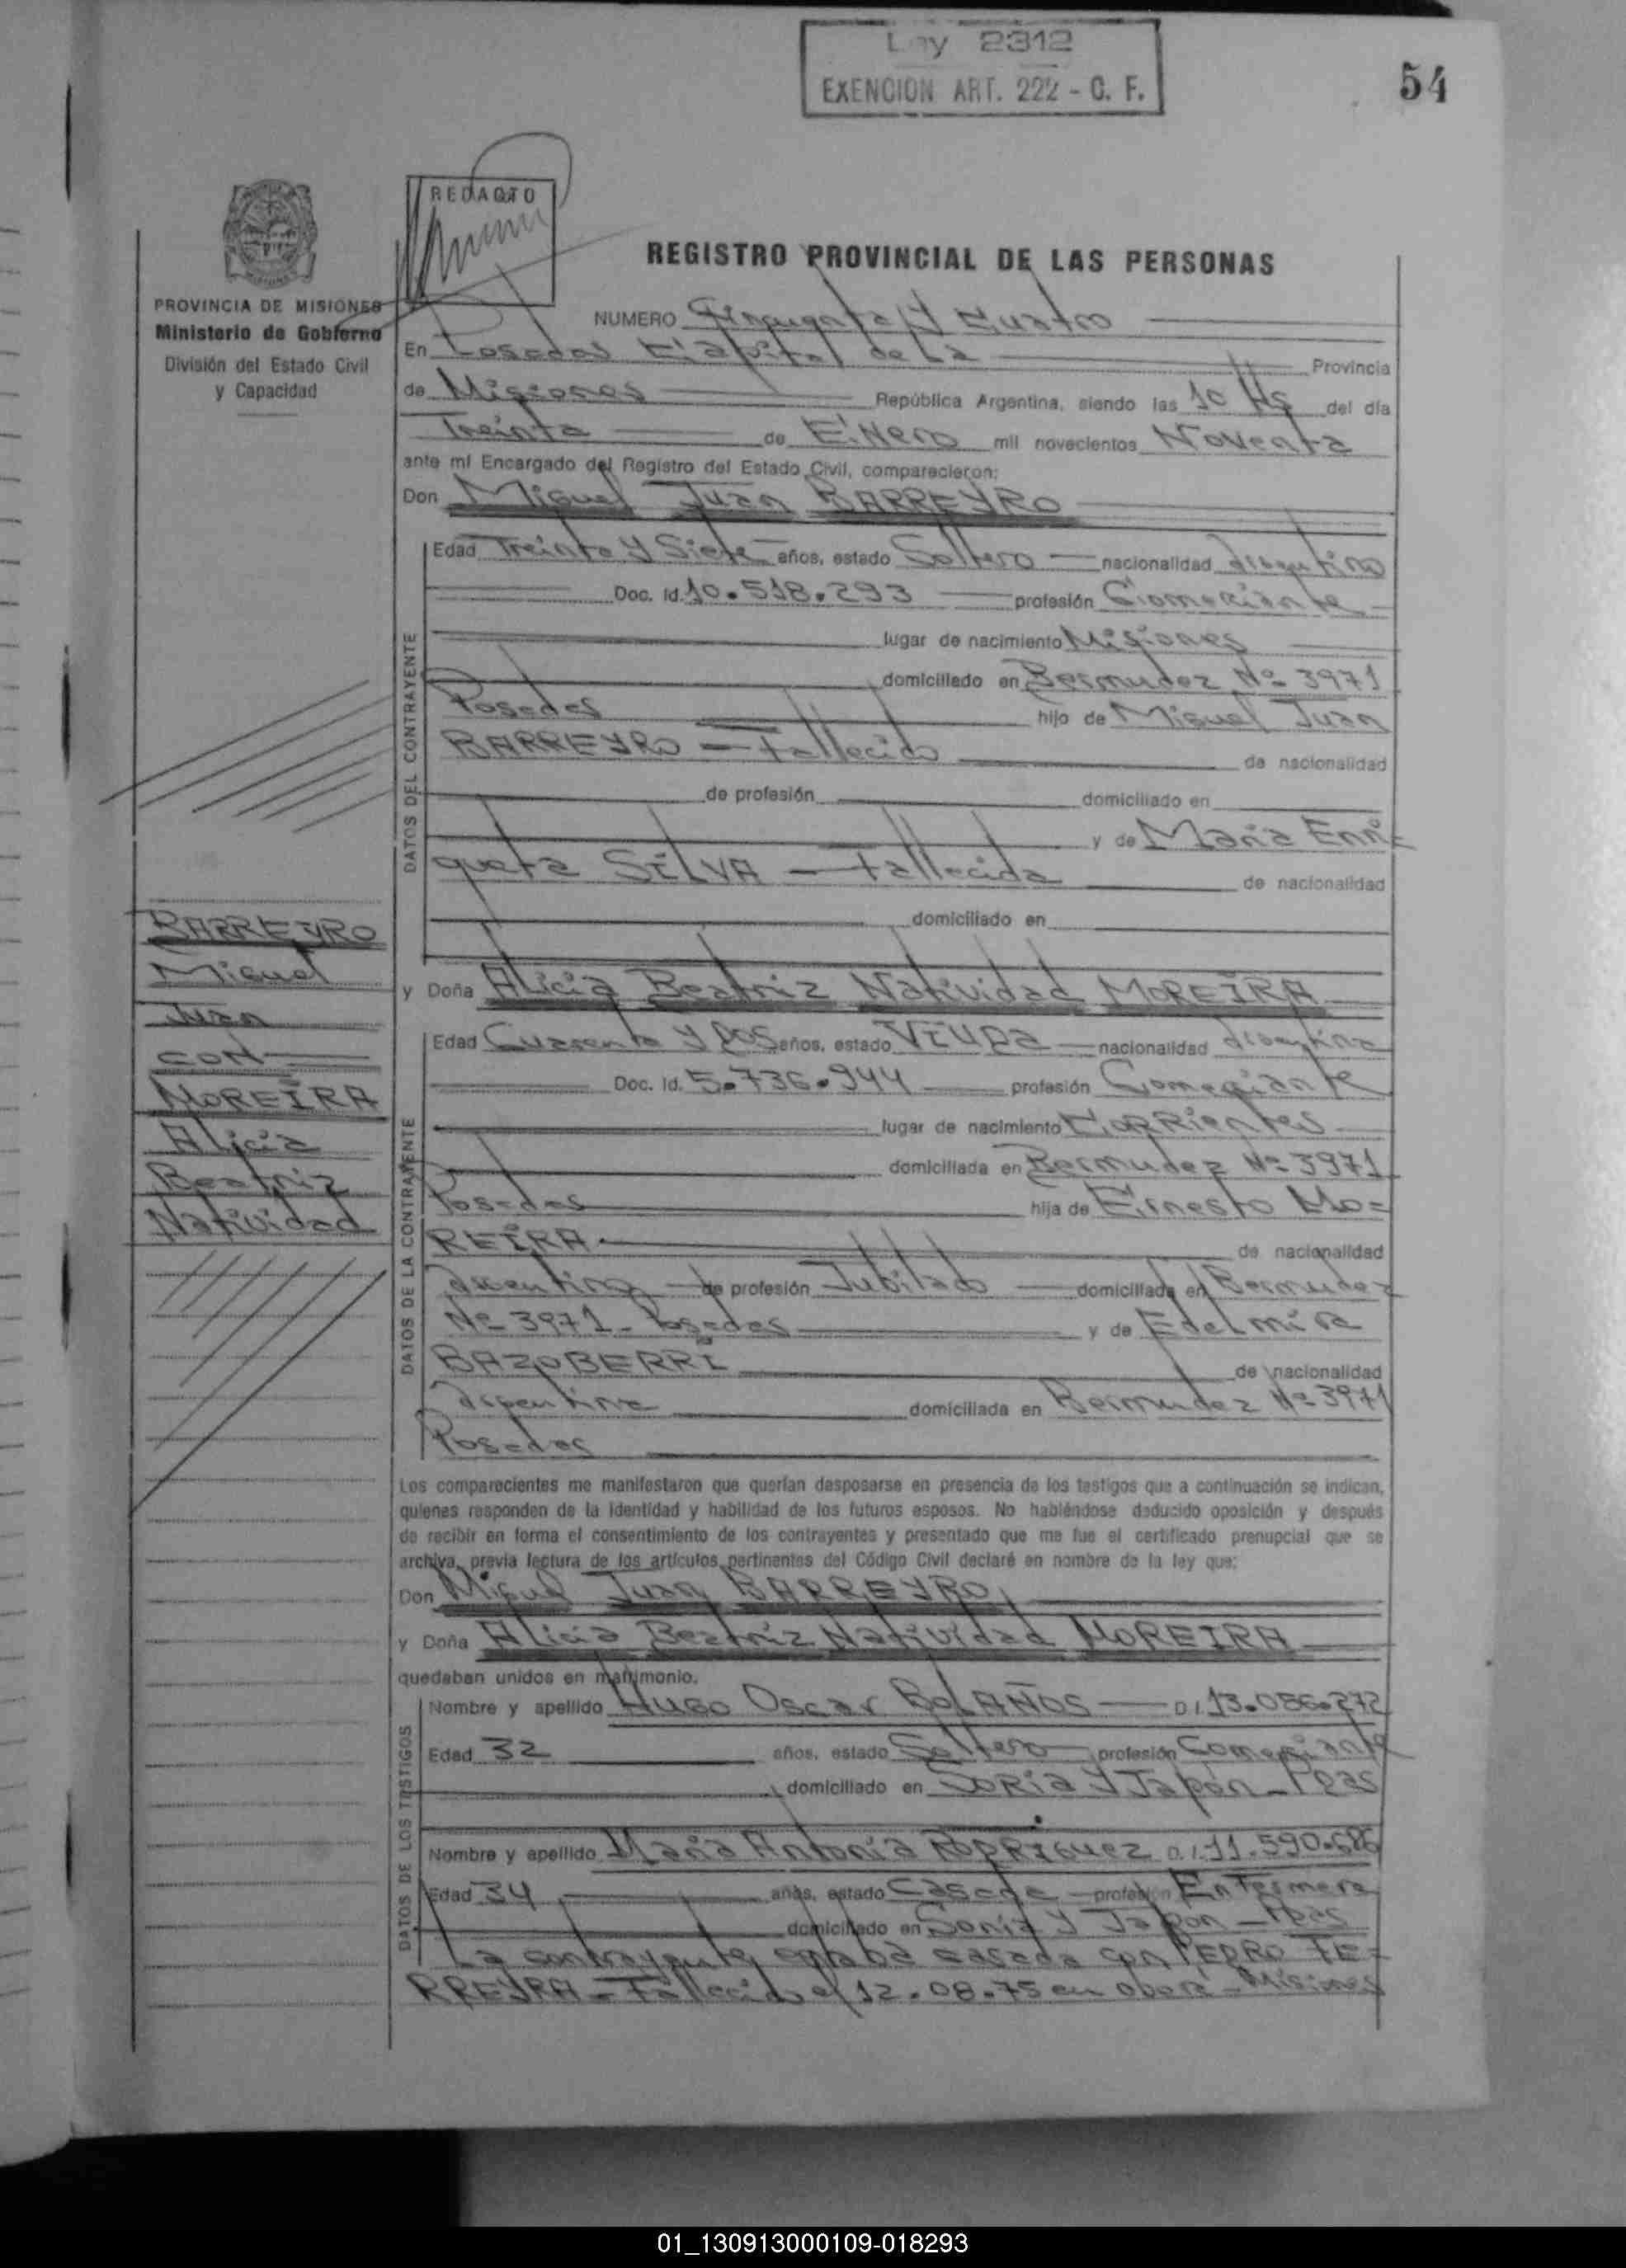 Ley 2312
EXENCION ART. 222 - C. F.
54
REDACTO
PROVINCIA DE MISIONES
Ministerio de Gobierno
División del Estado Civil
y Capacidad
REGISTRO PROVINCIAL DE LAS PERSONAS
NUMERO Cincuenta y Cuatro
En Posadas Capital de La Provincia
de Misiones República Argentina, siendo las 10 Hs del día
Treinta de Enero mil novecientos Noventa
ante mí Encargado del Registro del Estado Civil, comparecieron:
Don Miguel Juan BARREYRO
DATOS DEL CONTRAYENTE
Edad Treinta y Siete años, estado Soltero nacionalidad Argentino
Doc. Id. 10.518.293 profesión Comerciante
lugar de nacimiento Misiones
domiciliado en Bermudez Nº 3971
Posadas hijo de Miguel Juan
BARREYRO - Fallecido de nacionalidad
de profesión domiciliado en
y de Maria Enri=
queta SILVA - Fallecida de nacionalidad
domiciliado en
y Doña Alicia Beatriz Natividad MOREIRA
BARREYRO
Miguel
Juan
CON
MOREIRA
Alicia
Beatriz
Natividad
DATOS DE LA CONTRAYENTE
Edad Cuarenta y Dos años, estado Viuda nacionalidad Argentina
Doc. Id. 5.736.944 profesión Comerciante
lugar de nacimiento Corrientes
domiciliada en Bermudez Nº 3971
Posadas hija de Ernesto Mo=
REIRA de nacionalidad
Argentino de profesión Jubilado domiciliada en Bermudez
Nº 3971 - Posadas y de Edelmira
BAZOBERRI de nacionalidad
Argentina domiciliada en Bermudez Nº 3971
Posadas
Los comparecientes me manifestaron que querían desposarse en presencia de los testigos que a continuación se indican,
quienes responden de la identidad y habilidad de los futuros esposos. No habiéndose deducido oposición y después
de recibir en forma el consentimiento de los contrayentes y presentado que me fue el certificado prenupcial que se
archiva, previa lectura de los artículos pertinentes del Código Civil declaré en nombre de la ley que:
Don Miguel Juan BARREYRO
y Doña Alicia Beatriz Natividad MOREIRA
quedaban unidos en matrimonio.
DATOS DE LOS TESTIGOS
Nombre y apellido Hugo Oscar BOLAÑOS D.I. 13.056.272
Edad 32 años, estado Soltero profesión Comerciante
domiciliado en Soria y Japón - Pdas
Nombre y apellido Maria Antonia RODRIGUEZ D.I. 11.590.686
Edad 34 años, estado Casada profesión Enfermera
domiciliado en Soria y Japon - Pdas
La contrayente estaba casada con PEDRO FE=
RREYRA - Fallecido el 12.08.75 en Oberá - Misiones
01_130913000109-018293